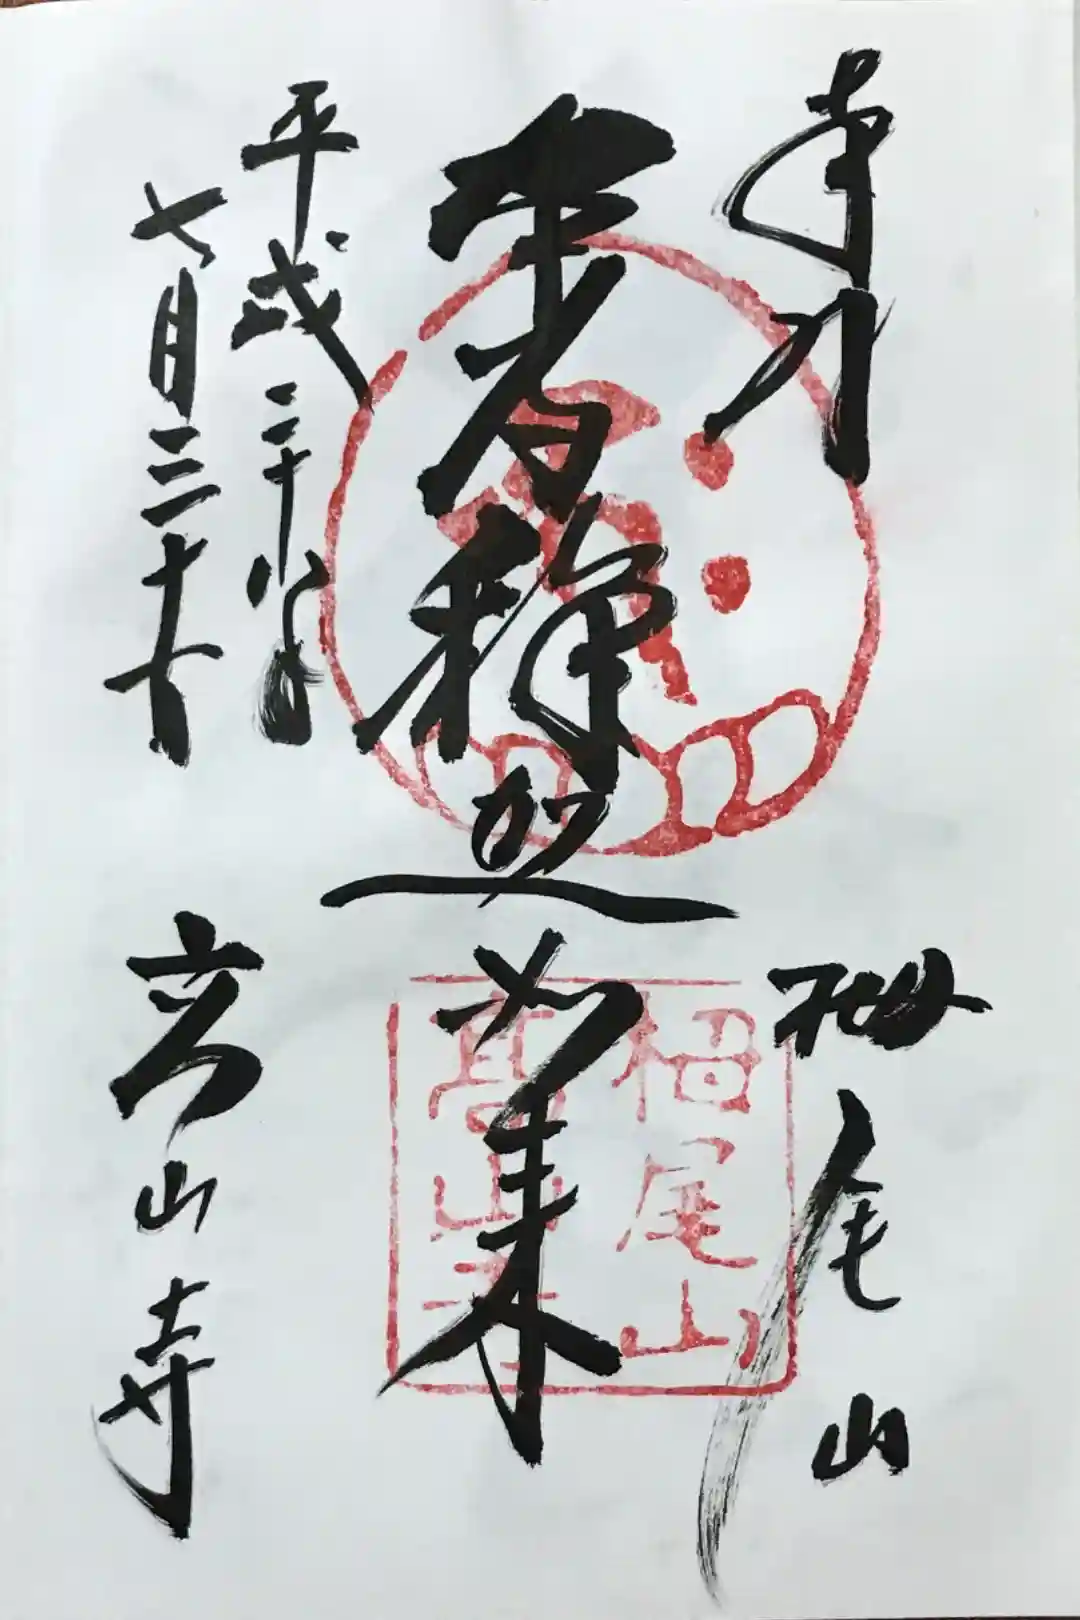 奉拝
栂尾山
釋迦如来
平成二十八年
七月三十
高山寺
栂尾山
高山寺